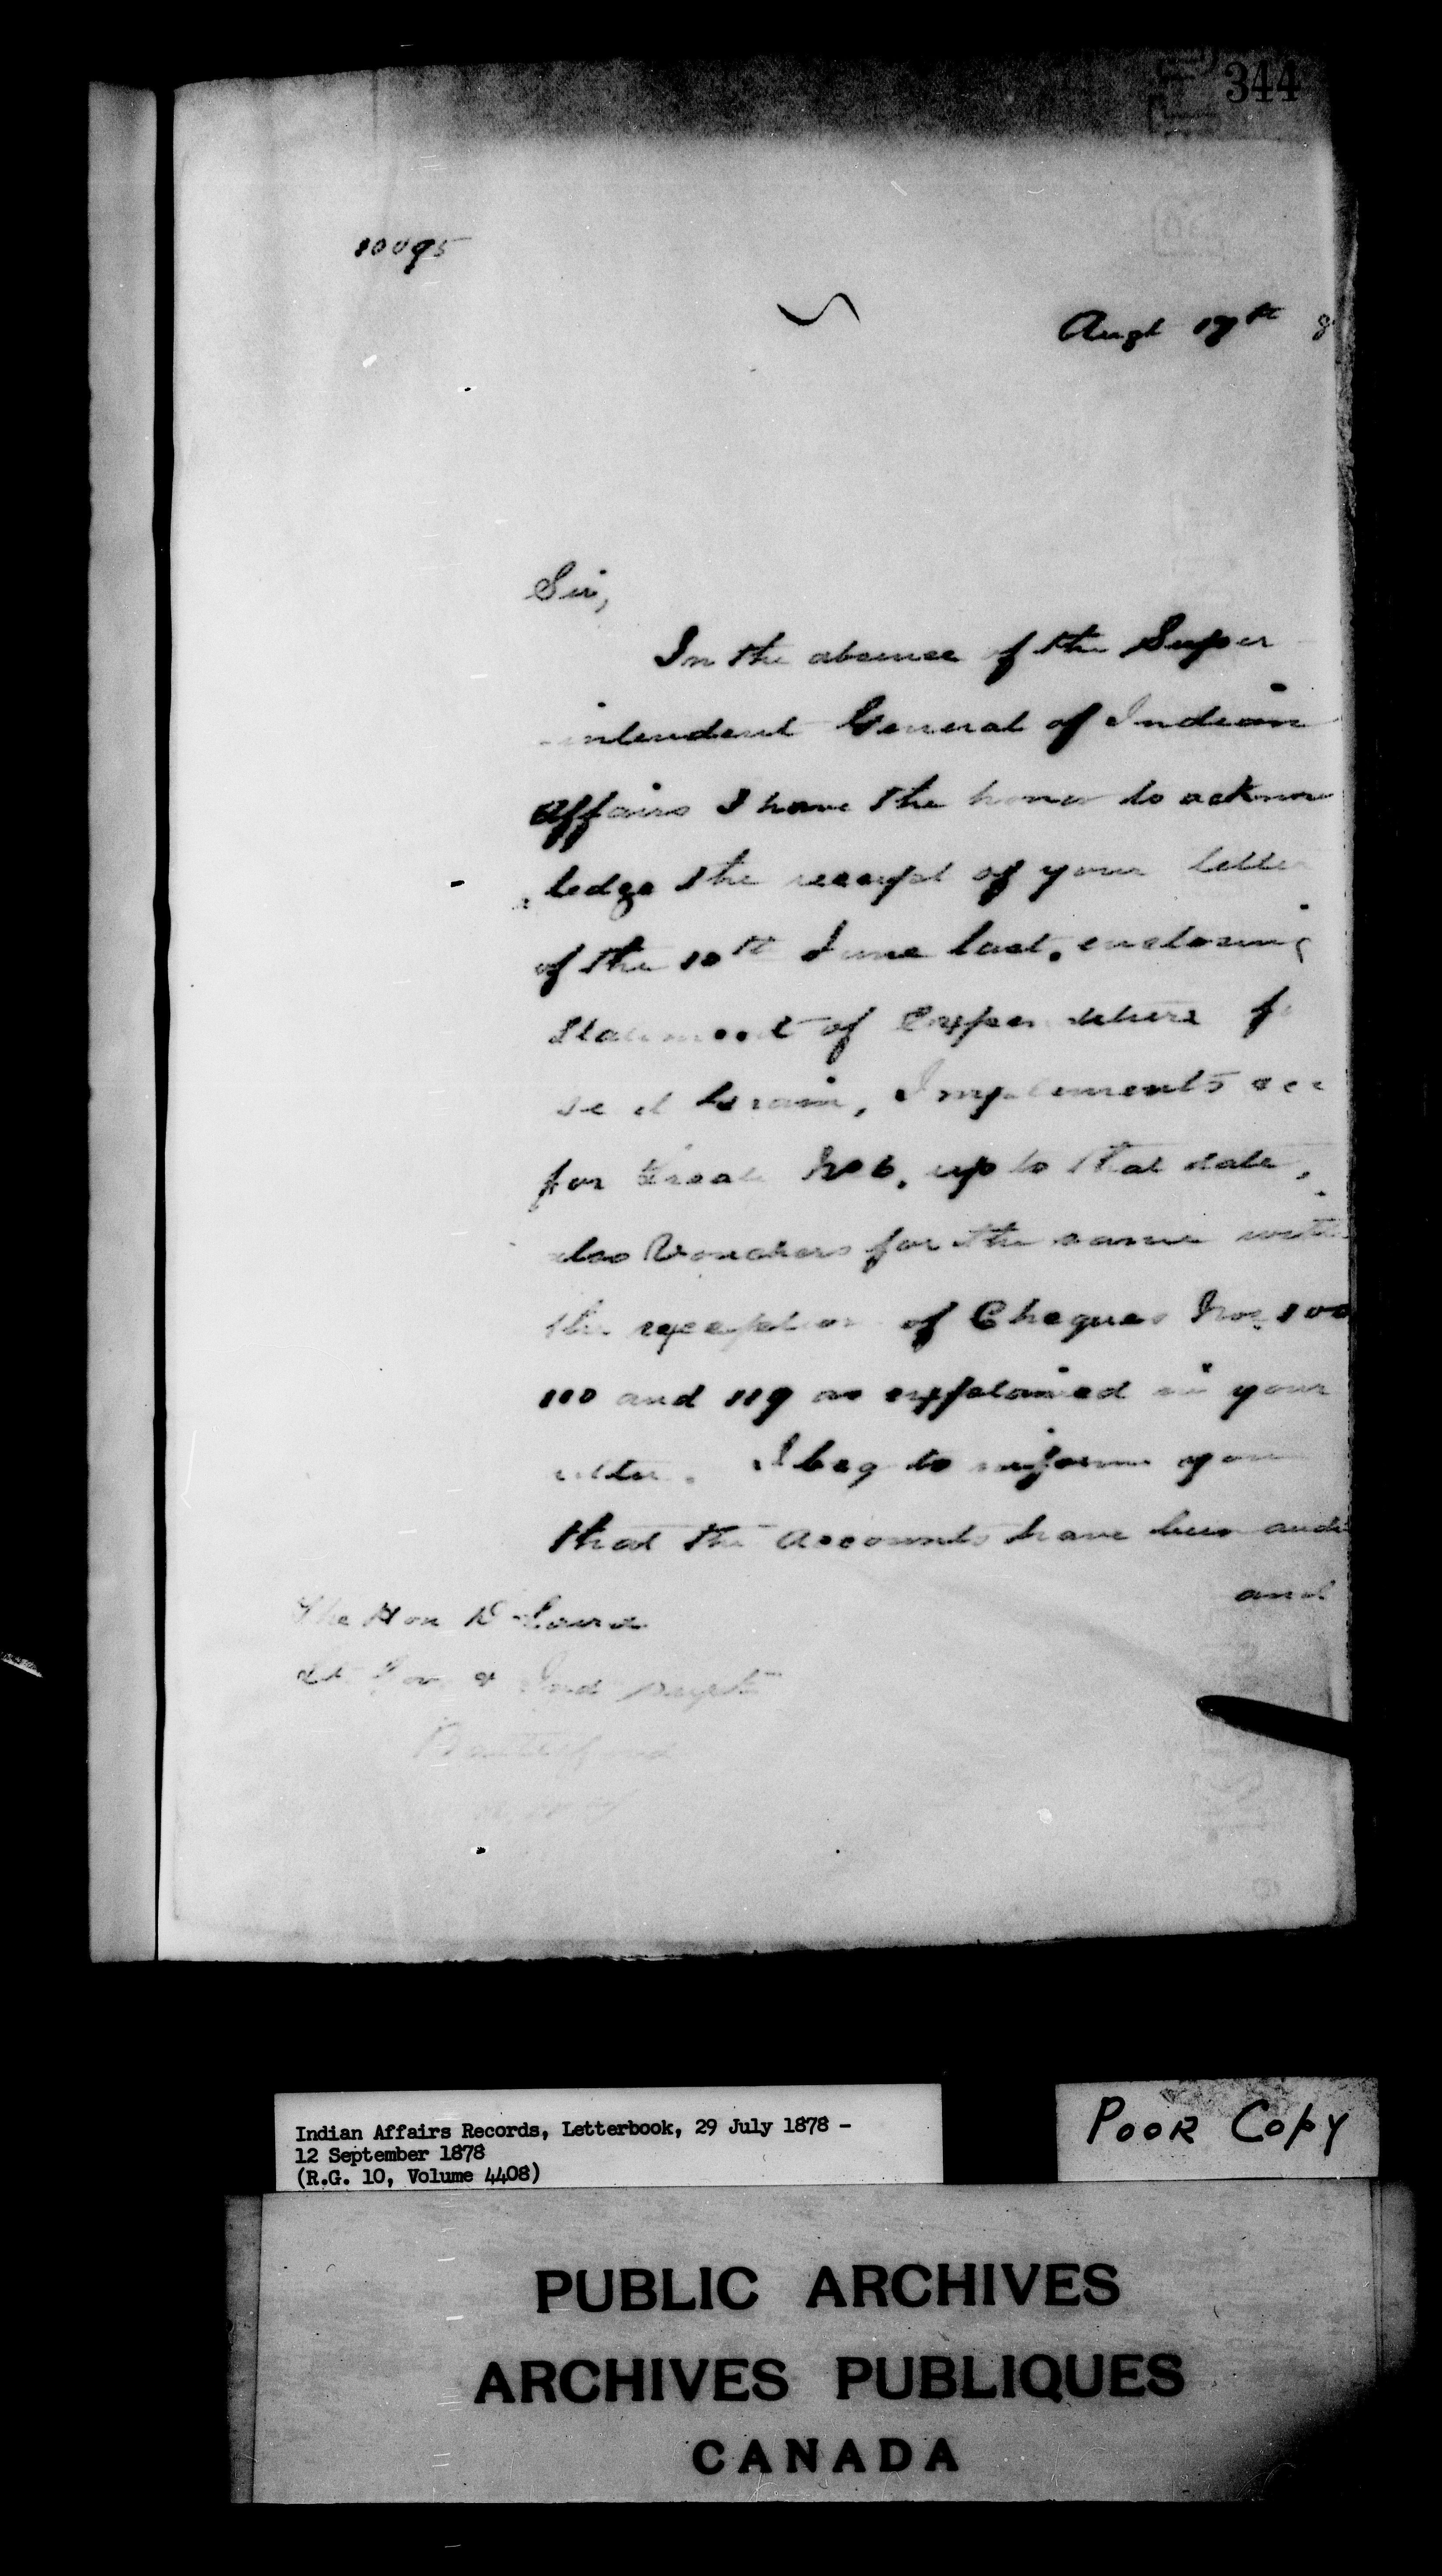 344
10095
Augt 17th 8
Sir,
In the absence of the Super
-intendent General of Indian
Affairs I have the honor to acknow
ledge the receipt of your letter
of the 10th June last, enclosing
Statement of Expenditure f
seed Grain, Implements &c
for Treaty No 6, up to that date,
also Vouchers for the same with
the exception of Cheques Nos 100
110 and 119 as explained in your
letter. I beg to inform you
that the Accounts have been audi
and
The Hon D Laird
Lt Gov & Ind Supt
Battleford
N.W.T
Indian Affairs Records, Letterbook, 29 July 1878 -
12 September 1878
(R.G. 10, Volume 4408)
POOR COPY
PUBLIC ARCHIVES
ARCHIVES PUBLIQUES
CANADA